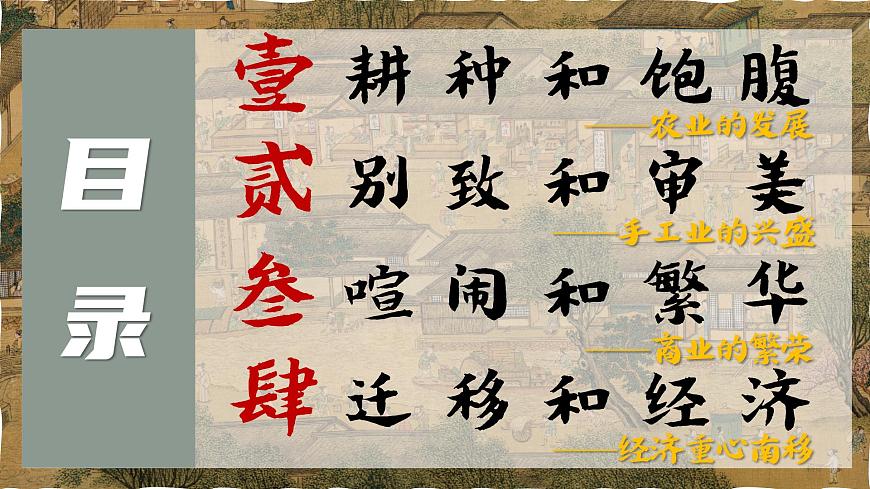 目录
壹 耕种和饱腹
——农业的发展
贰 别致和审美
——手工业的兴盛
叁 喧闹和繁华
——商业的繁荣
肆 迁移和经济
——经济重心南移